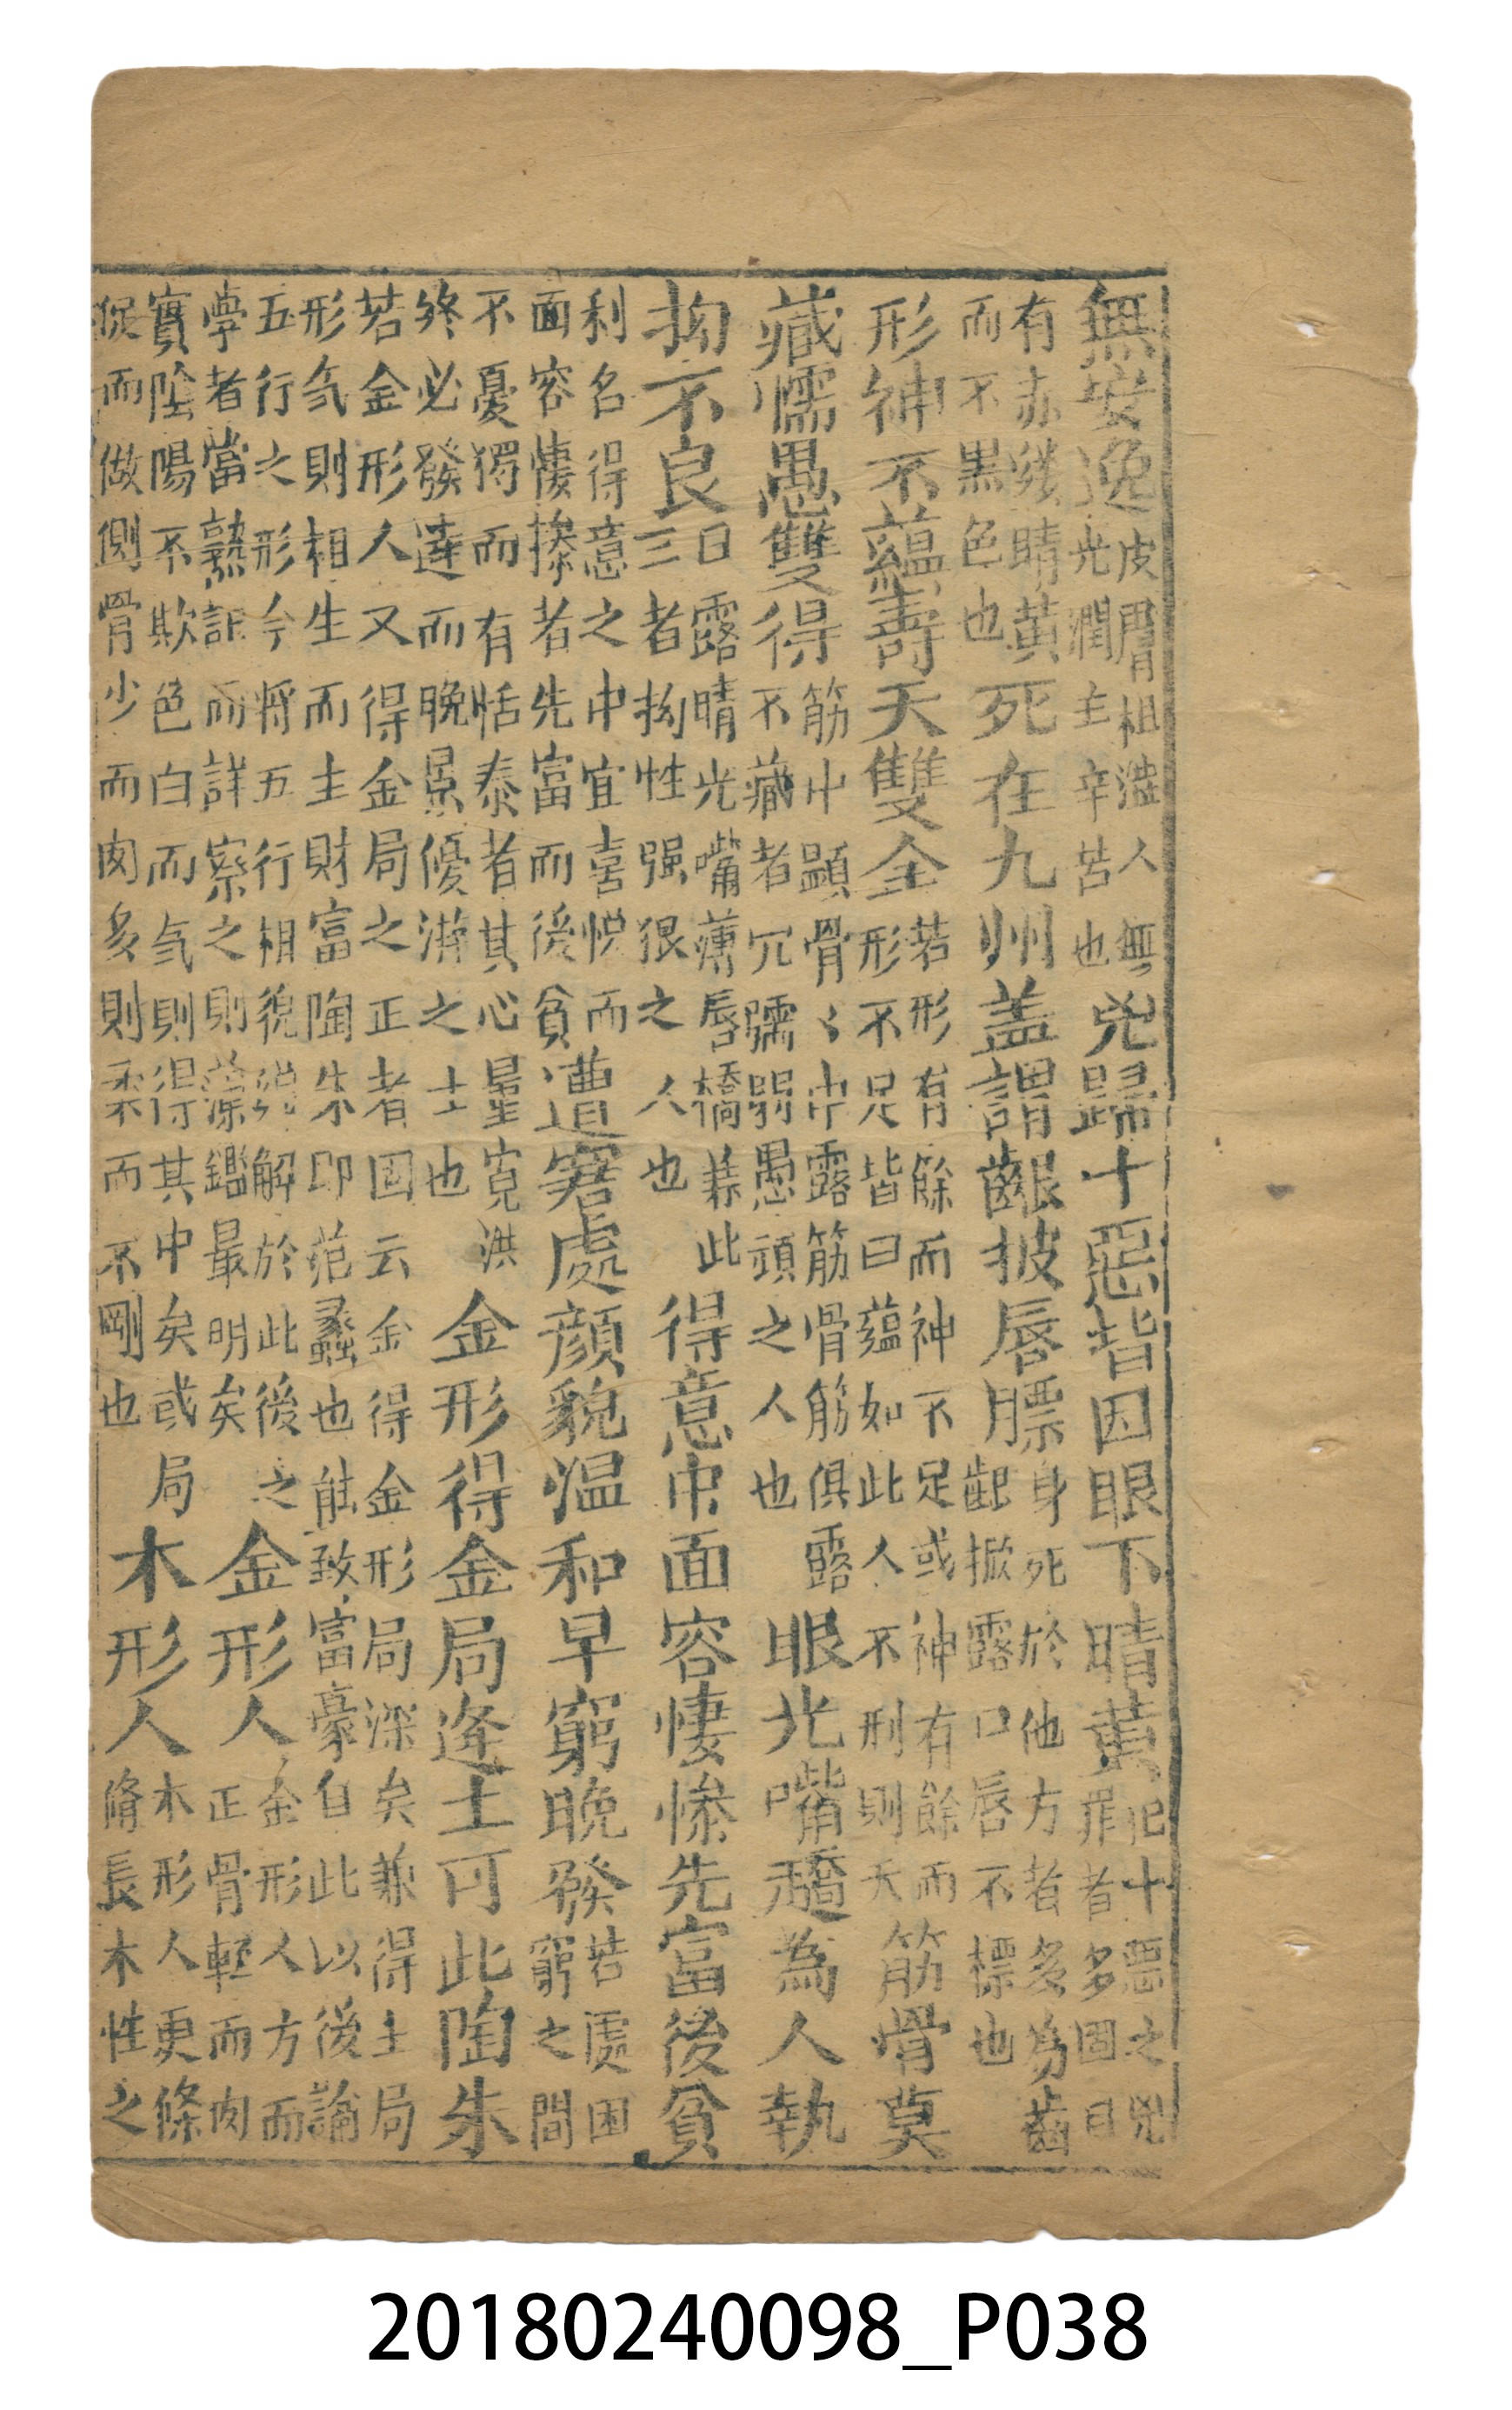 無安逸
皮膚粗澁人無
光潤主辛苦也
兇歸十惡皆因眼下睛黃
犯十惡之兇
罪者多固目
有赤縷睛黃
而不黑色也
死在九州盖謂齦披唇膘
身死於他方者多為齒
齦掀露口唇不標也
形神不蘊壽夭雙全
若形有餘而神不足或神有餘而
形不足皆曰蘊如此人不刑則夭
筋骨莫
藏懦愚雙得
筋中顯骨〻中露筋骨筋俱露
不藏者冗孺弱愚頑之人也
眼光嘴趫為人執
拗不良
日露睛光嘴薄唇橋蒜此
三者拗性强狠之人也
得意中面容悽慘先富後貧
利名得意之中宜喜悅而
面容悽摻者先富而後貧
遭窘處顏貌溫和早窮晚發
若處困
窮之間
不憂獨而有恬泰者其心量寬洪
終必發達而晚景優游之士也
金形得金局逢土可此陶朱
若金形人又得金局之正者固云金得金形局深矣兼得土局
形気則相生而主財富陶朱即范蠡也能致富豪自此以後論
五行之形今将五行相貌說解於此後之
學者當熟記而詳察之則藻鑑最明矣
金形人
金形人方而
正骨輕而肉
實陰陽不欺色白而気則得其中矣或局
促而做側骨少而肉多則柔而不剛也
木形人
木形人更條
脩長木性之
20180240098_P038